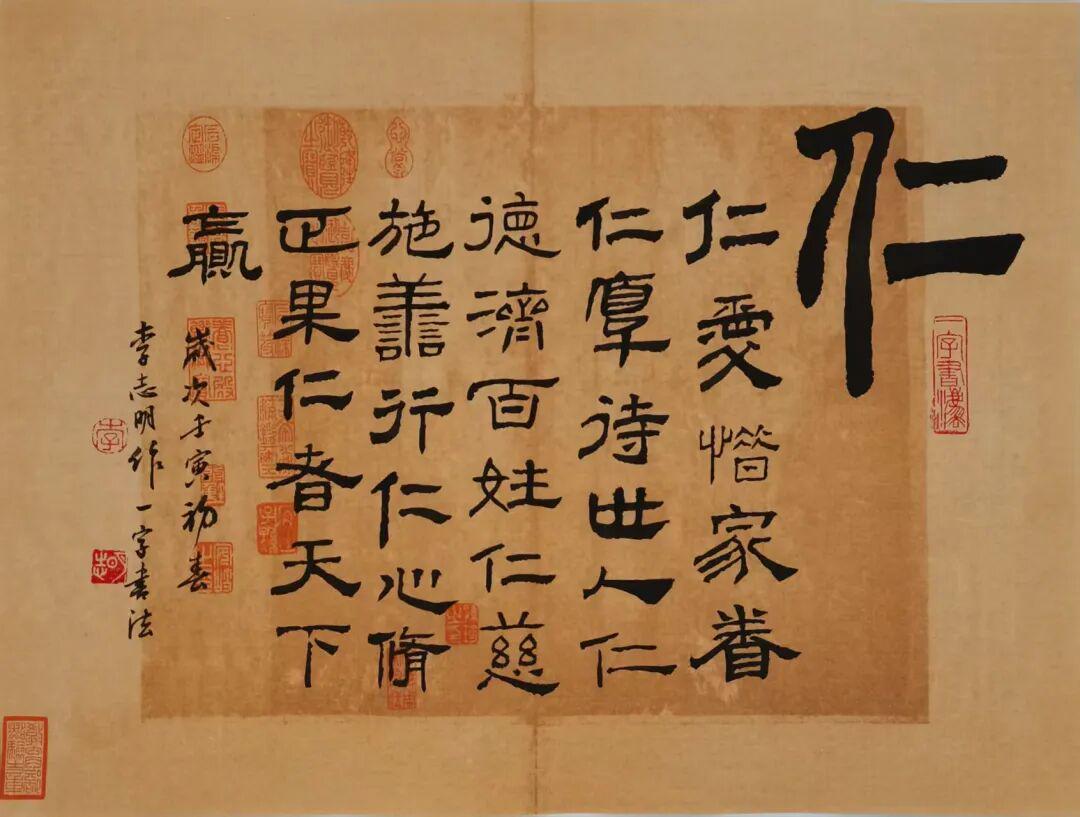 仁
仁愛惜家眷
仁厚待世人仁
德濟百姓仁慈
施善行仁心脩
正果仁者天下
贏
歲次壬寅初春
李志明作一字書法
一字書法
李